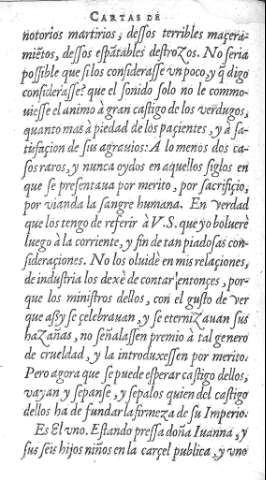 CARTAS DÉ
notorios martirios, dessos terribles maçera-
miẽtos, dessos espãtables destrozos. No seria
possible que si los considerasse vn poco, y q̃ digo
considerasse? que el sonido solo no le commo-
uiesse el animo à gran castigo de los verdugos,
quanto mas à piedad de los paçientes, y à sa-
tisfaçion de sus agrauios: A lo menos dos ca-
sos raros, y nunca oydos en aquellos siglos en
que se presentaua por merito, por sacrifiçio,
por vianda la sangre humana. En verdad
que los tengo de referir à V.S. que yo boluerè
luego à la corriente, y fin de tan piadosas con-
sideraçiones. No los oluidè en mis relaçiones,
de industria los dexè de contar entonçes, por-
que los ministros dellos, con el gusto de ver
que assy se çelebrauan, y se eternizauan sus
hazañas, no señalassen premio à tal genero
de crueldad, y la introduxessen por merito.
Pero agora que se puede esperar castigo dellos,
vayan y sepanse, y sepalos quien del castigo
dellos ha de fundar la firmeza de su Imperio.
Es El vno. Estando pressa doña Iuanna, y
sus seis hijos niños en la carçel publica, y vno